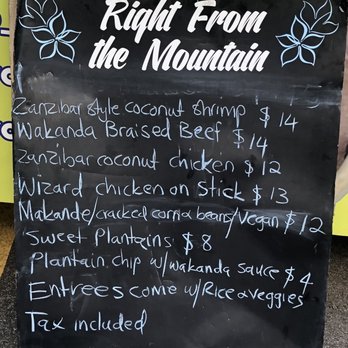 Right From
the Mountain
Zanzibar style coconut shrimp $14
Wakanda Braised Beef $14
Zanzibar coconut chicken $12
Wizard chicken on stick $13
Makande/cracked corn & beans/Vegan $12
Sweet Plantains $8
Plantain chip w/wakanda sauce $4
Entrees come w/Rice & veggies
Tax included